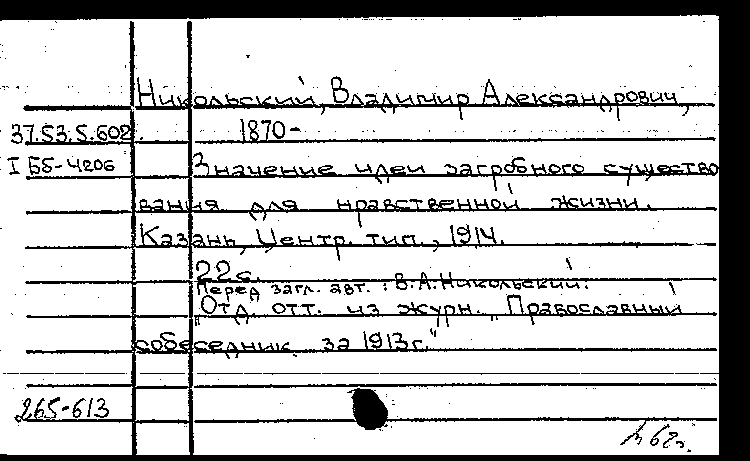 Никольский, Владимир Александрович,
37.53.5.602. 1870-
I ББ-4206 Значение идеи загробного существо
вания для нравственной жизни.
Казань, Центр. тип., 1914.
22 с.
Перед загл. авт.: В.А.Никольский.
"Отд. отт. из журн. „Православный
собеседник за 1913г."
265-613
62г.